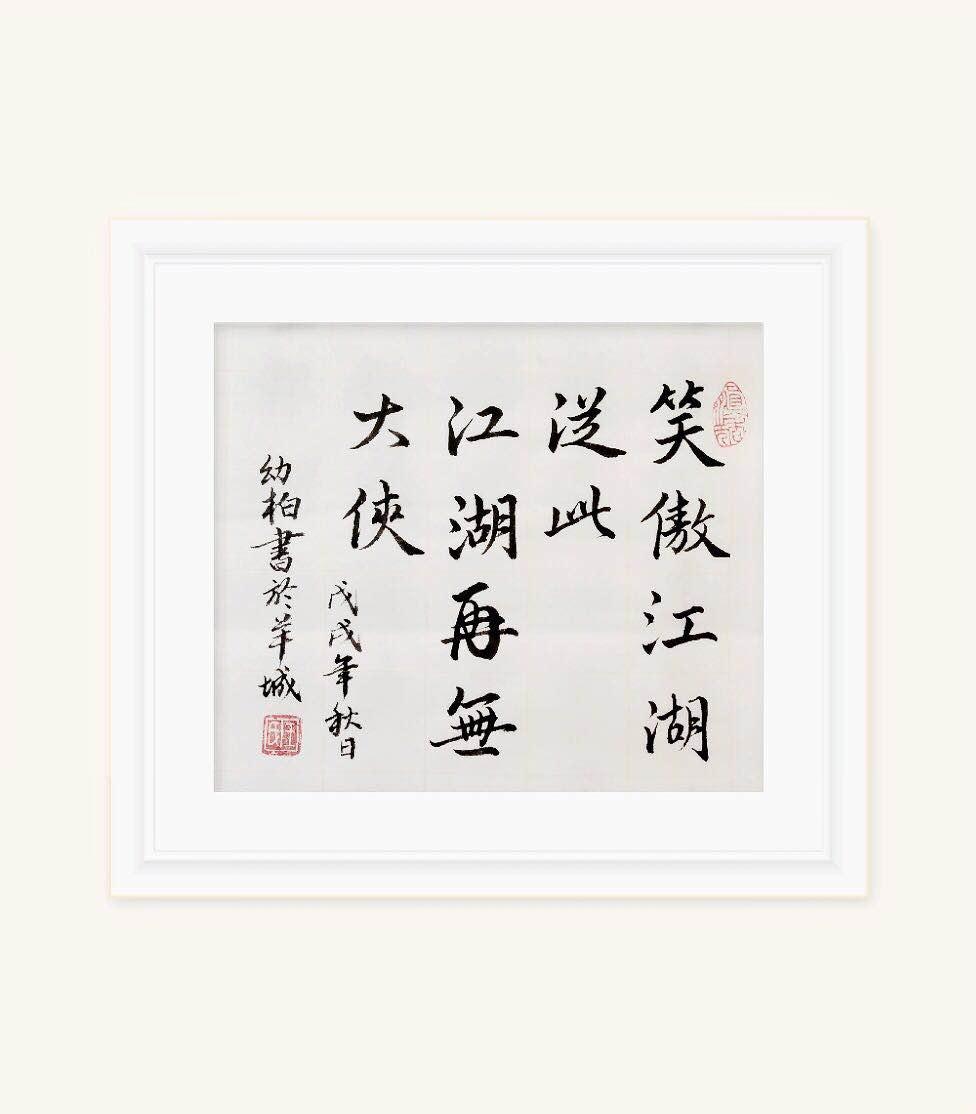 笑傲江湖
從此
江湖再無
大俠
戊戌年秋日
幼柏書於羊城